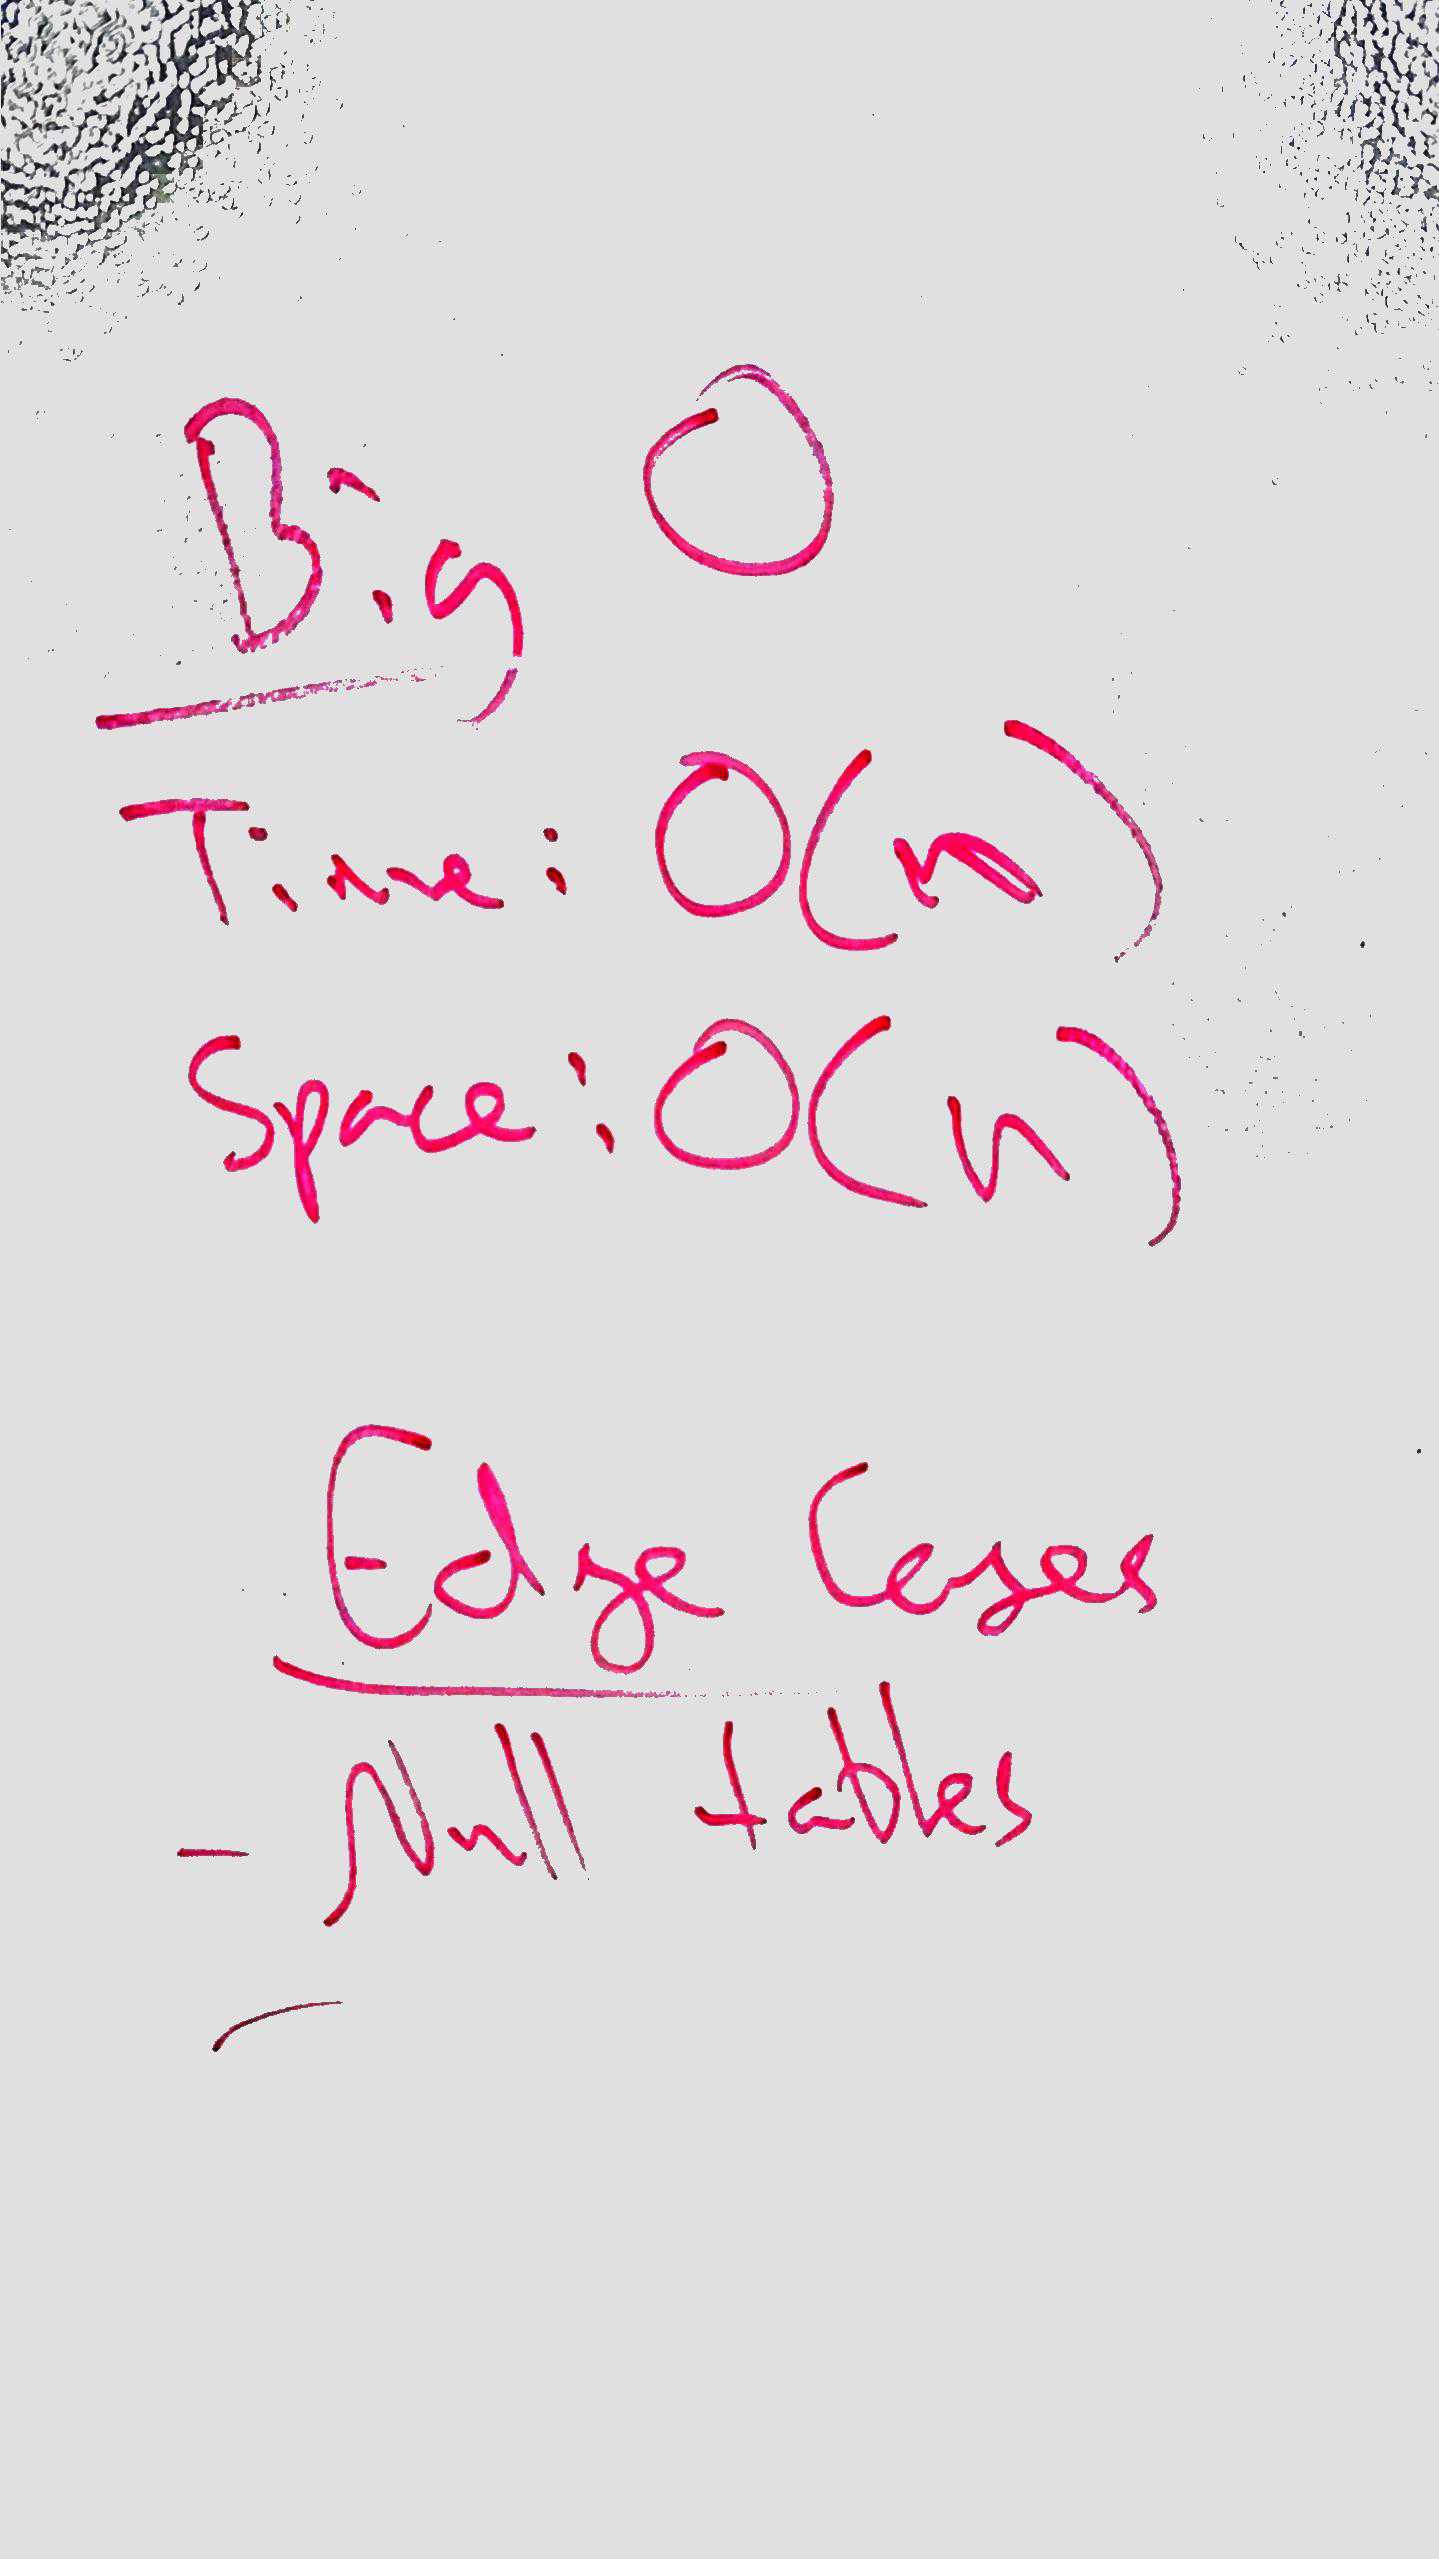 Big O
Time: O(n)
Space: O(n)
Edge Cases
- Null tables
-